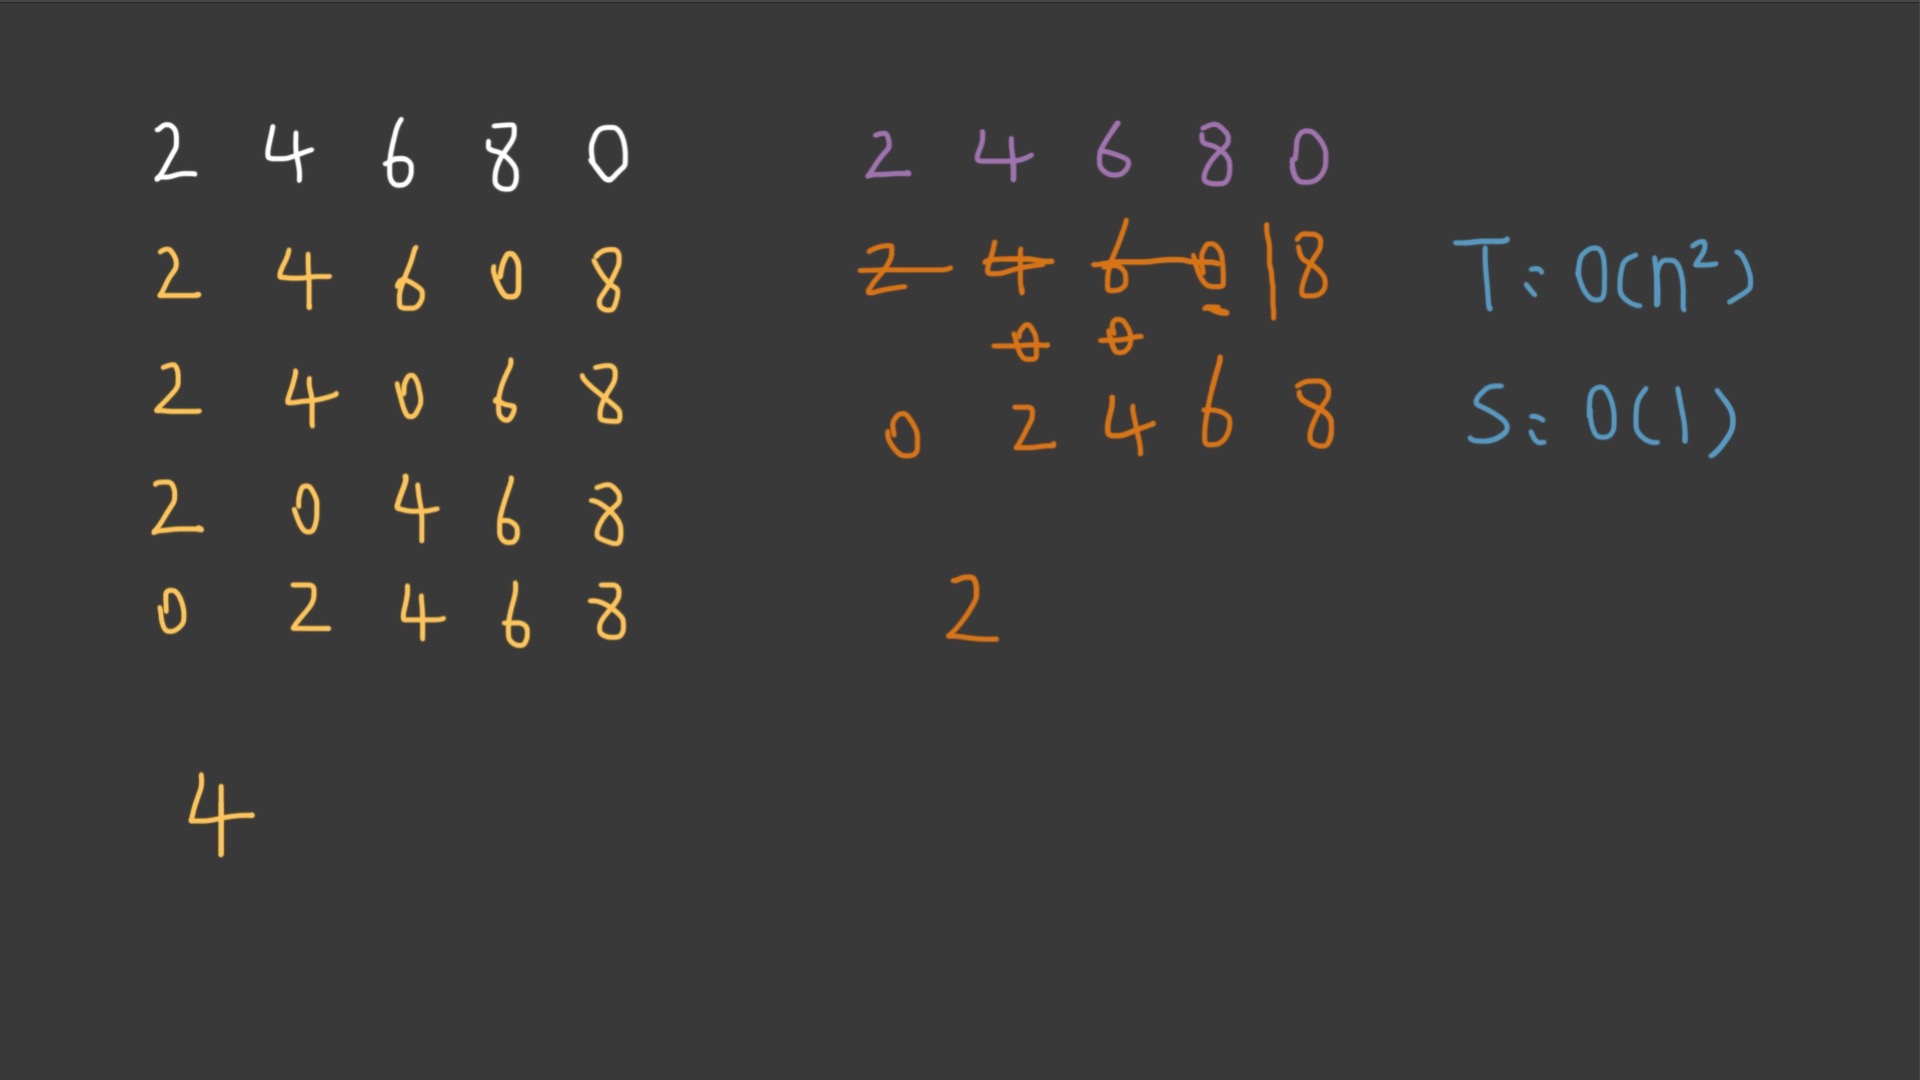 2 4 6 8 0
2 4 6 0 8
2 4 0 6 8
2 0 4 6 8
0 2 4 6 8
4
2 4 6 8 0
2 4 6 0 | 8
0 0
0 2 4 6 8
2
T: O(n²)
S: O(1)